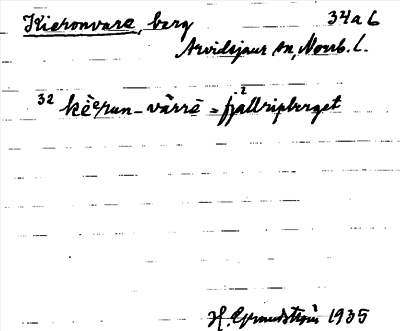 Kieronvare, berg 34a6
Arvidsjaur sn, Norrb. l.
32 kèerun-vārrē = fjällripberget
1935